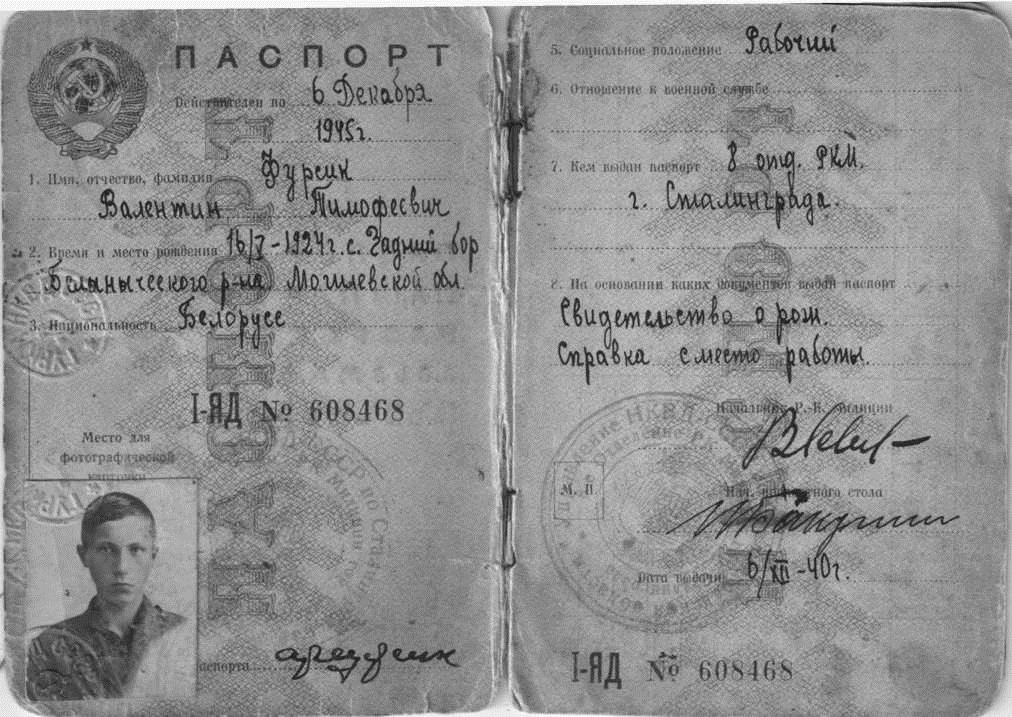 ПАСПОРТ
Действителен по 6 Декабря
1945г.
1. Имя, отчество, фамилия Фурсик
Валентин Тимофеевич
2. Время и место рождения 16/V-1924г. с. Гадний бор
Белыничского р-на Могилевской обл.
3. Национальность Белорусс
I-ЯД № 608468
Место для
фотографической
карточки
аспорта
5. Социальное положение Рабочий
6. Отношение к военной службе
7. Кем выдан паспорт 8 отд. РКМ.
г. Сталинграда.
8. На основании каких документов выдан паспорт
Свидетельство о рож.
Справка с место работы.
Начальник Р.-К. милиции
М. П
Нач. паспортного стола
Дата выдачи 6/XII-40г.
I-ЯД № 608468